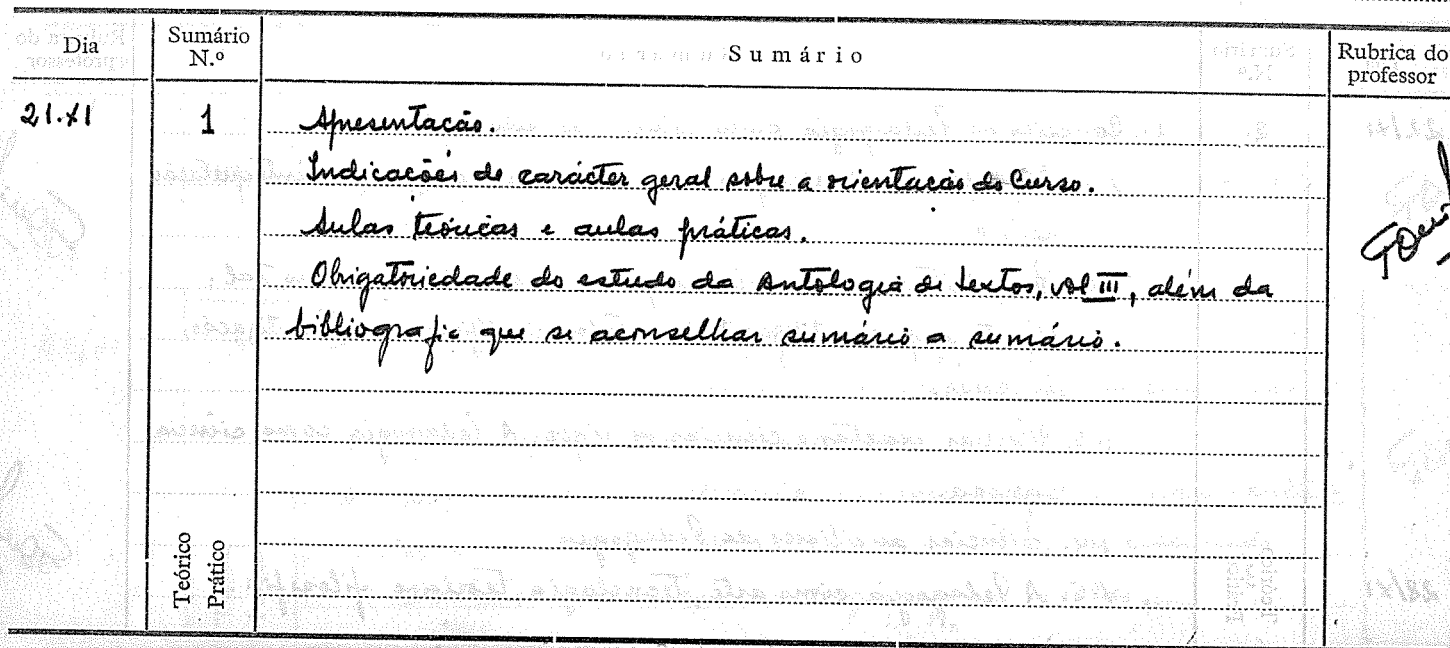 Dia
Sumário N.º
Sumário
Rubrica do professor
21.XI
1
Apresentação.
Indicações de carácter geral sôbre a orientação do Curso.
Aulas teóricas e aulas práticas.
Obrigatoriedade do estudo da Antologia de textos, vol III, além da
bibliografia que se aconselhar sumário a sumário.
Teórico
Prático